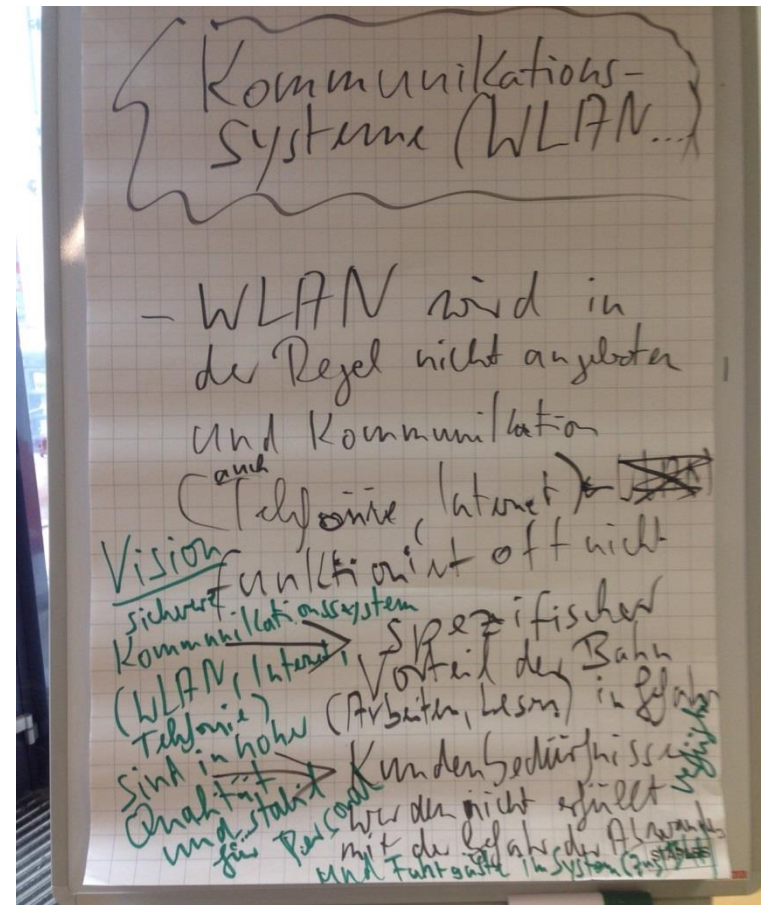 Kommunikations-
systeme (WLAN...)
- WLAN wird in
der Regel nicht angeboten
und Kommunikation
(auch Telefonie, Internet)
funktioniert oft nicht
→ spezifischer
Vorteil der Bahn
(Arbeiten, Lesen) in Gefahr
→ Kundenbedürfnisse
werden nicht erfüllt
mit der Gefahr der
Vision
Kommunikationssystem
(WLAN, Internet,
Telefonie)
sind in hoher
Qualität
und stabil
für Personal
und Fahrgäste im System
verfügbar